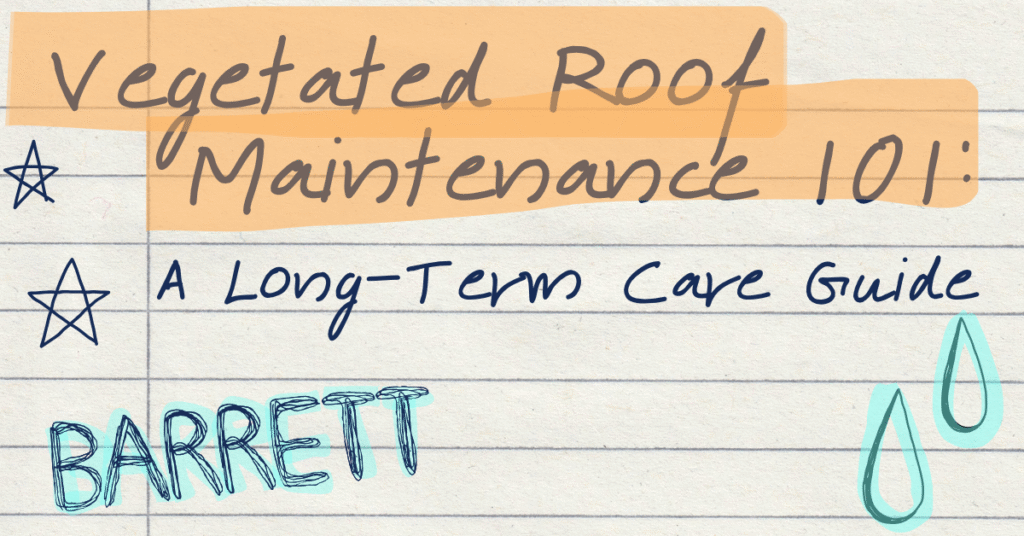 Vegetated Roof
Maintenance 101:
A Long-Term Care Guide
BARRETT